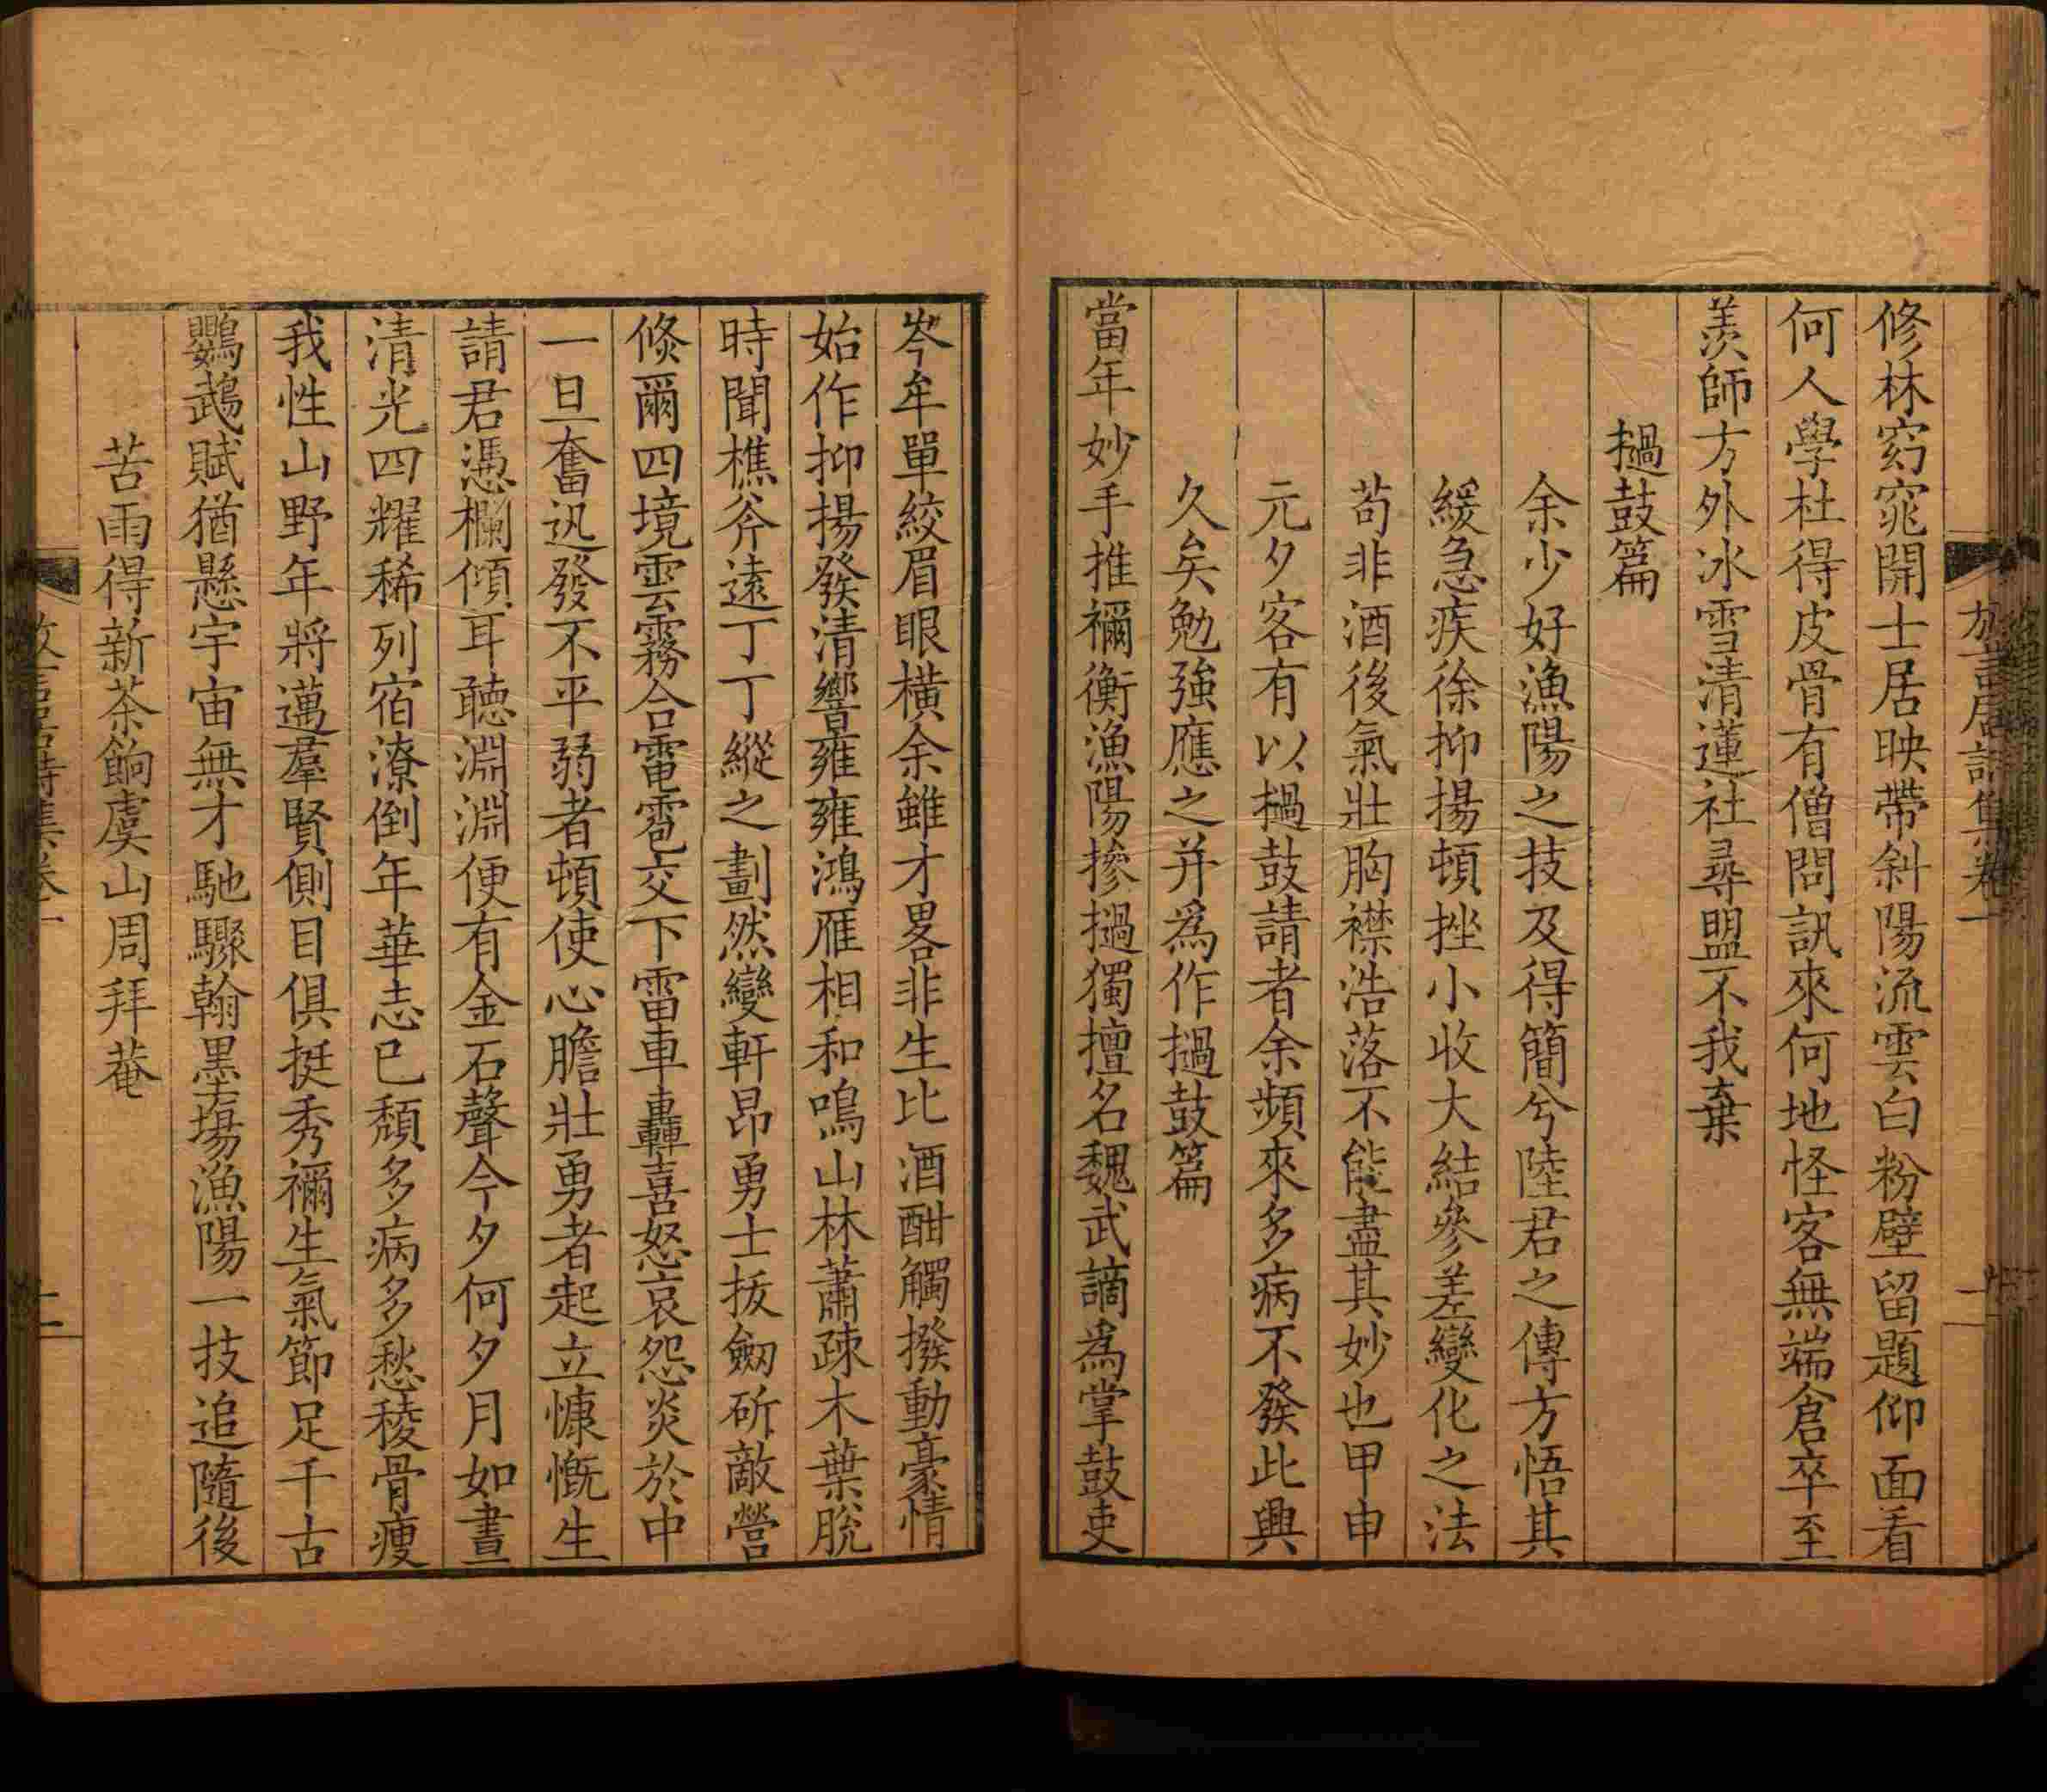 修林窈窕開士居映帶斜陽流雲白粉壁留題仰面看
何人學杜得皮骨有僧問訊來何地怪客無端倉卒至
羨師方外冰雪清蓮社尋盟不我棄
撾鼓篇
余少好漁陽之技及得簡兮陸君之傳方悟其
緩急疾徐抑揚頓挫小收大結參差變化之法
苟非酒後氣壯胸襟浩落不能盡其妙也甲申
元夕客有以撾鼓請者余頻來多病不發此興
久矣勉強應之并爲作撾鼓篇
當年妙手推禰衡漁陽摻撾獨擅名魏武謫爲掌鼓吏
岑牟單絞眉眼橫余雖才畧非生比酒酣觸撥動豪情
始作抑揚發清響雍雍鴻雁相和鳴山林蕭疎木葉脫
時聞樵斧遠丁丁縱之劃然變軒昂勇士拔劒斫敵營
倏爾四境雲霧合電雹交下雷車轟喜怒哀怨炎於中
一旦奮迅發不平弱者頓使心膽壯勇者起立慷慨生
請君憑欄傾耳聽淵淵便有金石聲今夕何夕月如晝
清光四耀稀列宿潦倒年華志已頹多病多愁稜骨瘦
我性山野年將邁羣賢側目俱挺秀禰生氣節足千古
鸚鵡賦猶懸宇宙無才馳驟翰墨塲漁陽一技追隨後
苦雨得新茶餉虞山周拜菴